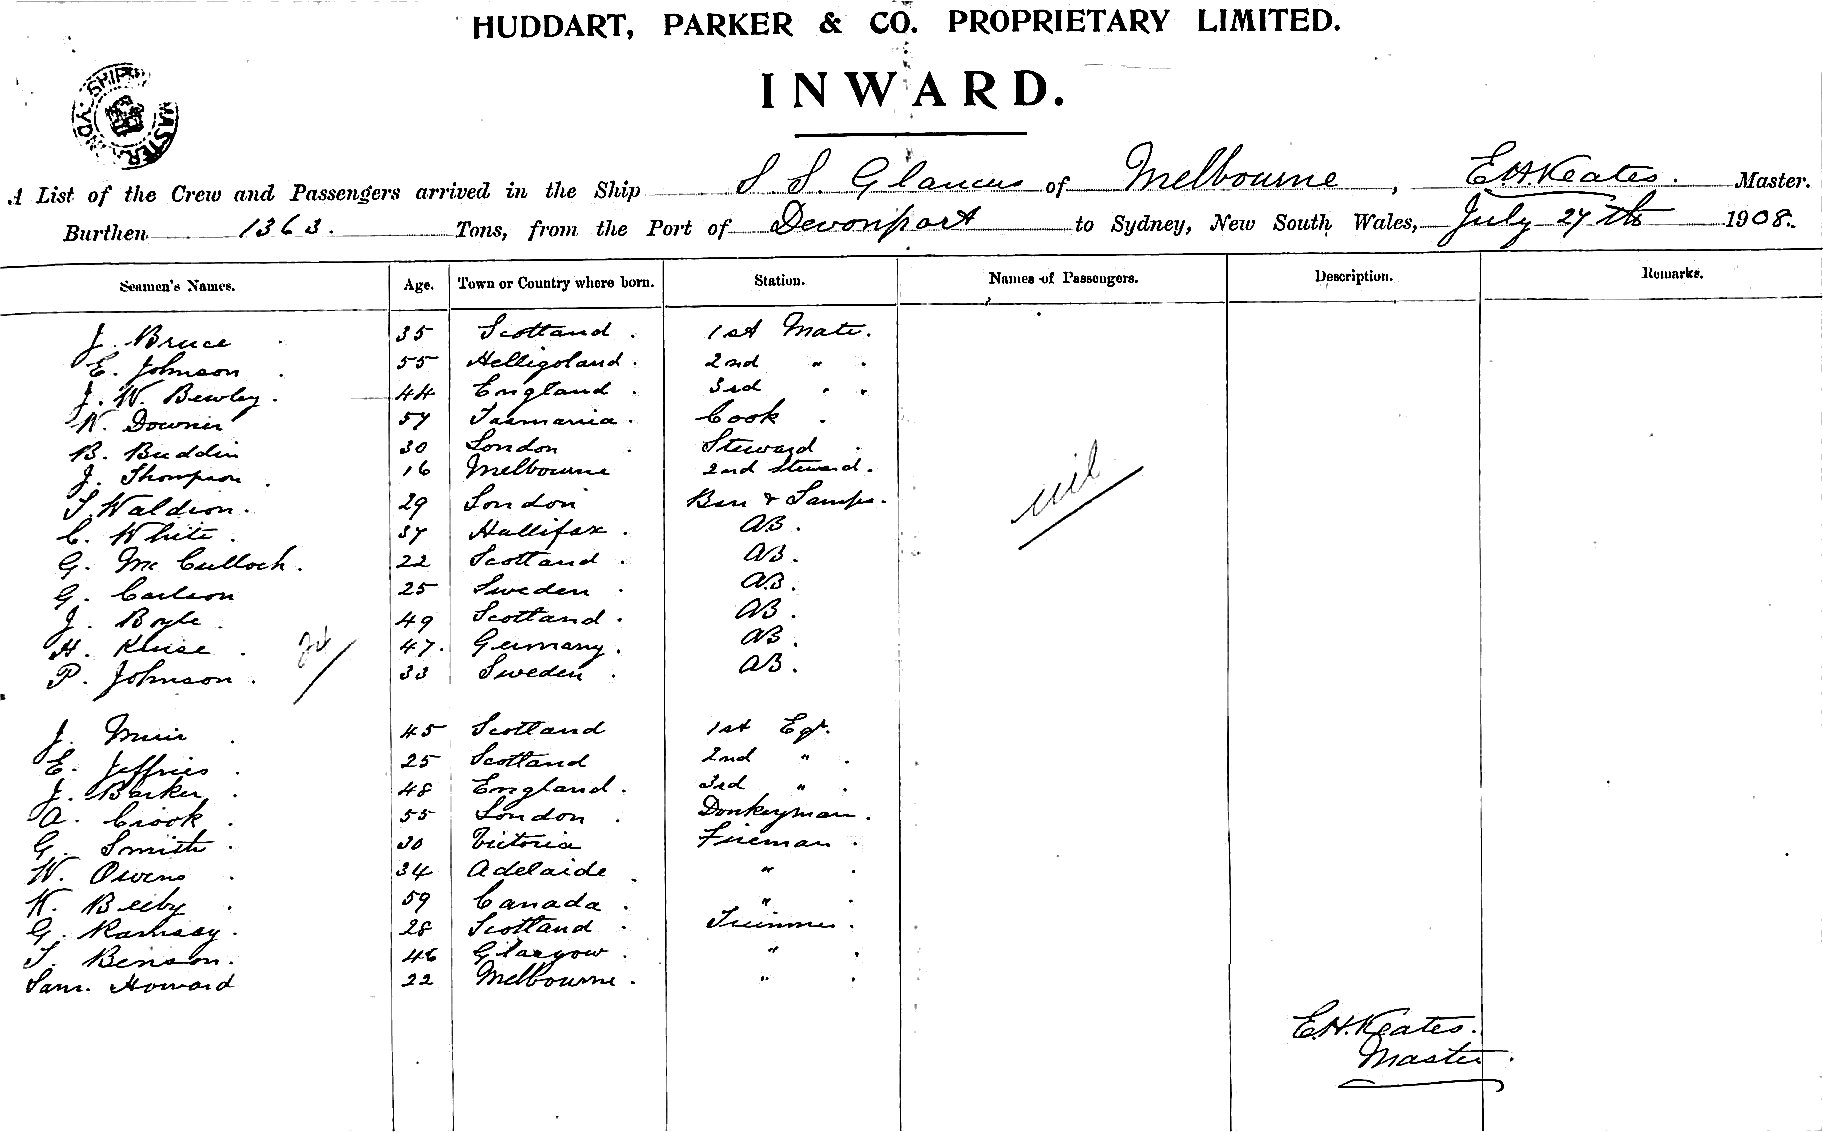 HUDDART, PARKER & CO. PROPRIETARY LIMITED.
INWARD.
SHIPPING MASTER SYDNEY
A List of the Crew and Passengers arrived in the Ship S S. Glaucus of Melbourne, E.H. Keates. Master.
Burthen 1363. Tons, from the Port of Devonport to Sydney, New South Wales, July 27th 1908.
Seamen's Names. Age. Town or Country where born. Station. Names of Passengers. Description. Remarks.
J. Bruce 35 Scotland. 1st Mate.
E. Johnson 55 Helligoland. 2nd "
J. W. Bewley. 44 England. 3rd "
W. Downie 57 Tasmania. Cook
B. Buddin 30 London Steward
J. Thompson 16 Melbourne 2nd Steward.
S. Waldron. 29 London Bsn & Lamps.
C. White. 37 Hallifax. AB.
G. Mc Culloch. 22 Scotland AB.
G. Carlson 25 Sweden AB.
J. Boyle. 49 Scotland. AB.
H. Kruse 47. Germany. AB.
P. Johnson. 33 Sweden AB.
nil
J. Muir 45 Scotland 1st Egr.
E. Jeffries 25 Scotland 2nd "
J. Barker 48 England. 3rd "
A. Crook 55 London Donkeyman.
G. Smith 30 Victoria Fireman
W. Owens 34 Adelaide "
W. Beeby 59 Canada. "
G. Ramsay. 28 Scotland Trimmer.
T. Benson. 46 Glasgow "
Sam. Howard 22 Melbourne. "
E.H. Keates.
Master.